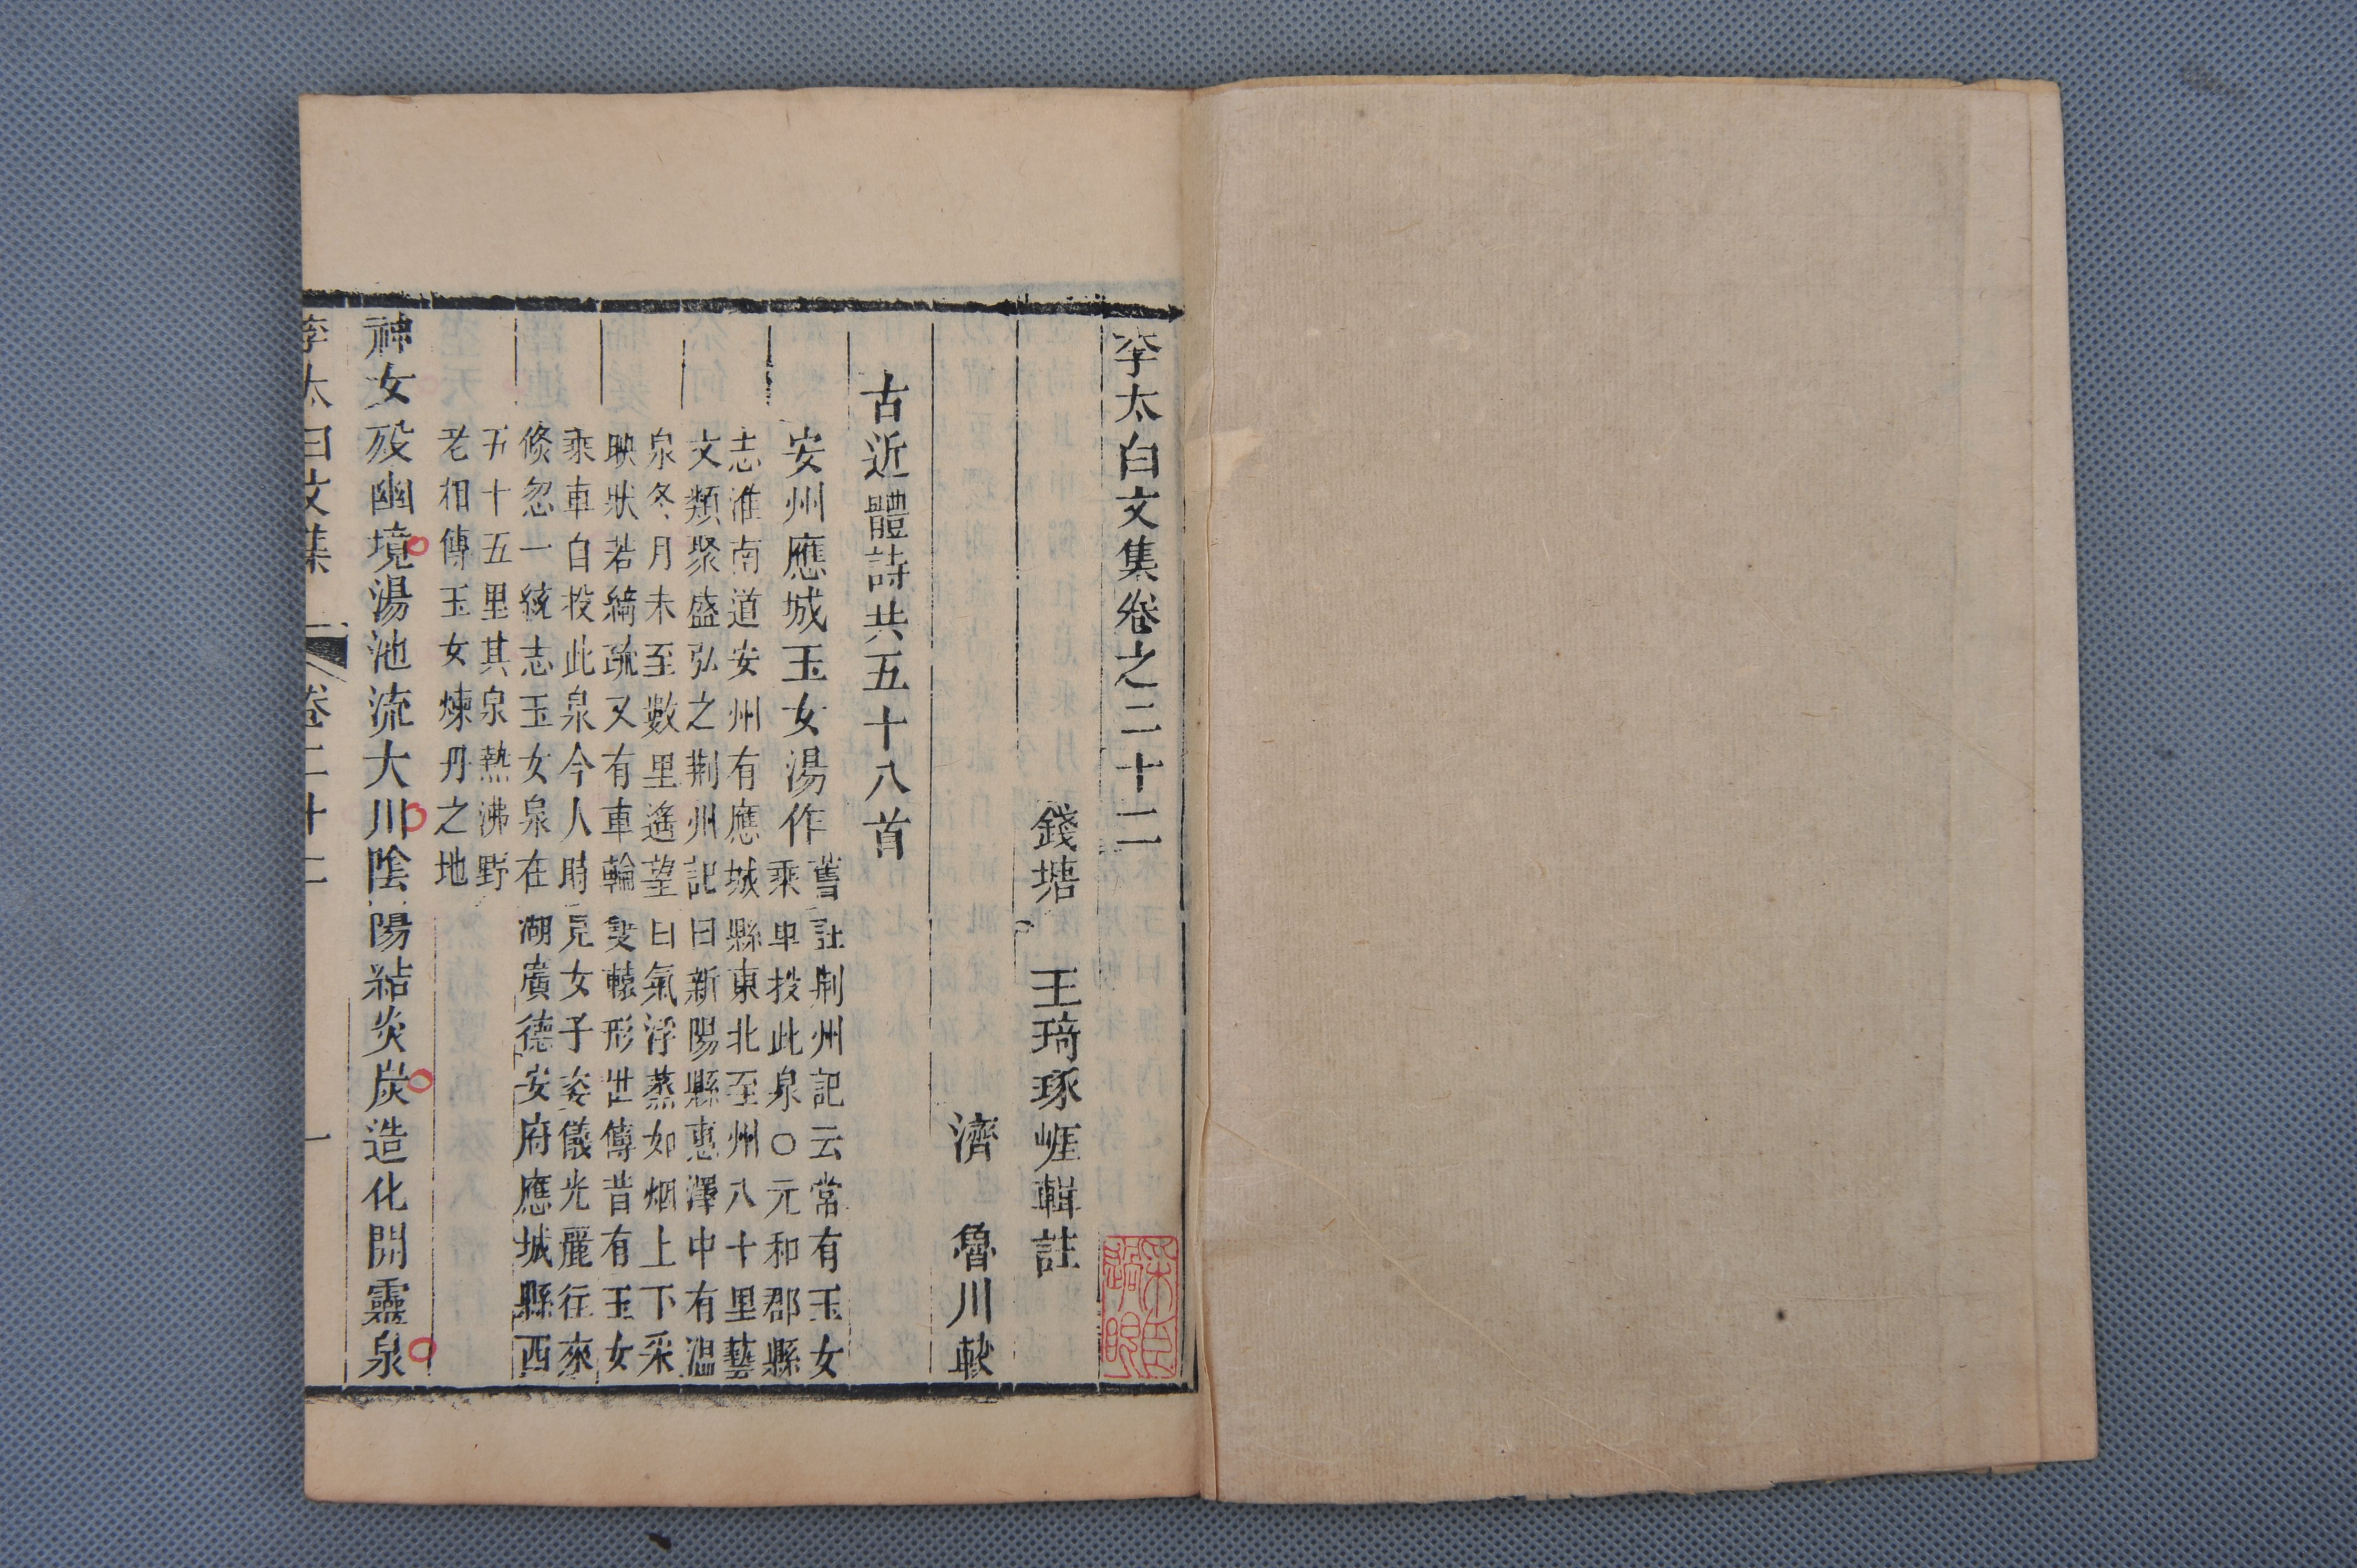 李太白文集卷之二十二
錢塘 王琦琢崖輯註
濟 魯川較
古近體詩共五十八首
安州應城玉女湯作
舊註荆州記云常有玉女
乘車投此泉○元和郡縣
志淮南道安州有應城縣東北至州八十里藝
文類聚盛弘之荆州記曰新陽縣惠澤中有温
泉冬月未至數里遙望白氣浮蒸如烟上下采
映狀若綺疏又有車輪雙轅形世傳昔有玉女
乘車自投此泉今人時見女子姿儀光麗往來
倐忽一統志玉女泉在湖廣德安府應城縣西
五十五里其泉熱沸野
老相傳玉女煉丹之地
神女歿幽境湯池流大川陰陽結炎炭造化開靈泉
李太白文集 卷二十二 一